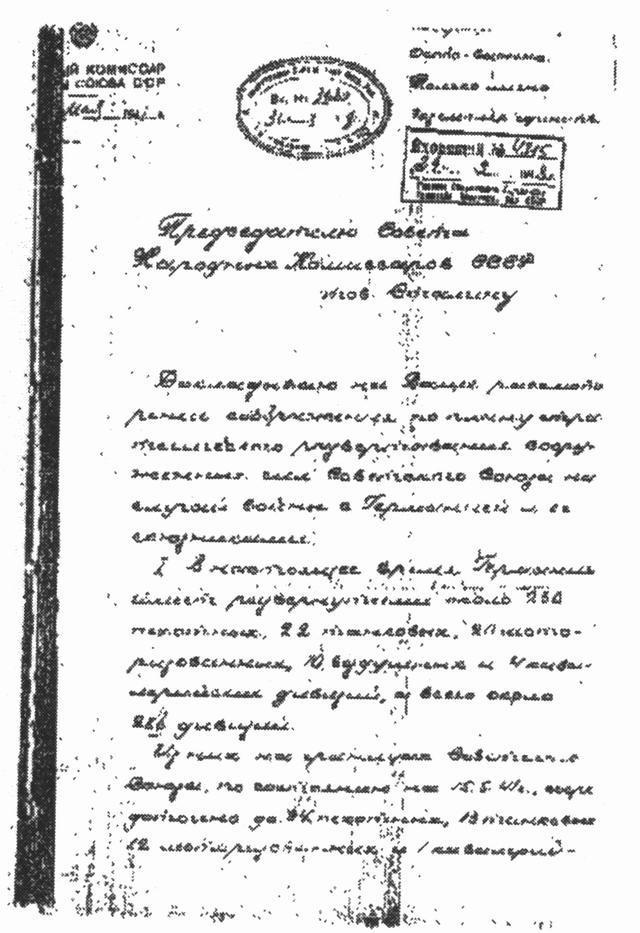 Й КОМИССАР
СОЮЗА ССР
Особо важно
Только лично
Вх. №
Входящий №
Председателю Совета
Народных Комиссаров СССР
тов. Сталину
Докладываю на Ваше рассмот-
рение соображения по плану стра-
тегического развертывания воору-
женных сил Советского Союза на
случай войны с Германией и ее
союзниками.
I В настоящее время Германия
имеет развернутыми около 230
пехотных, 22 танковых, 20 мото-
ризованных, 10 воздушных и 4 кава-
лерийских дивизий, а всего около
дивизий.
Из них на границах Советского
Союза, по состоянию на 15.5.41г., сосре
доточено до пехотных, 13 танковых
12 моторизованных и 1 кавалерий-